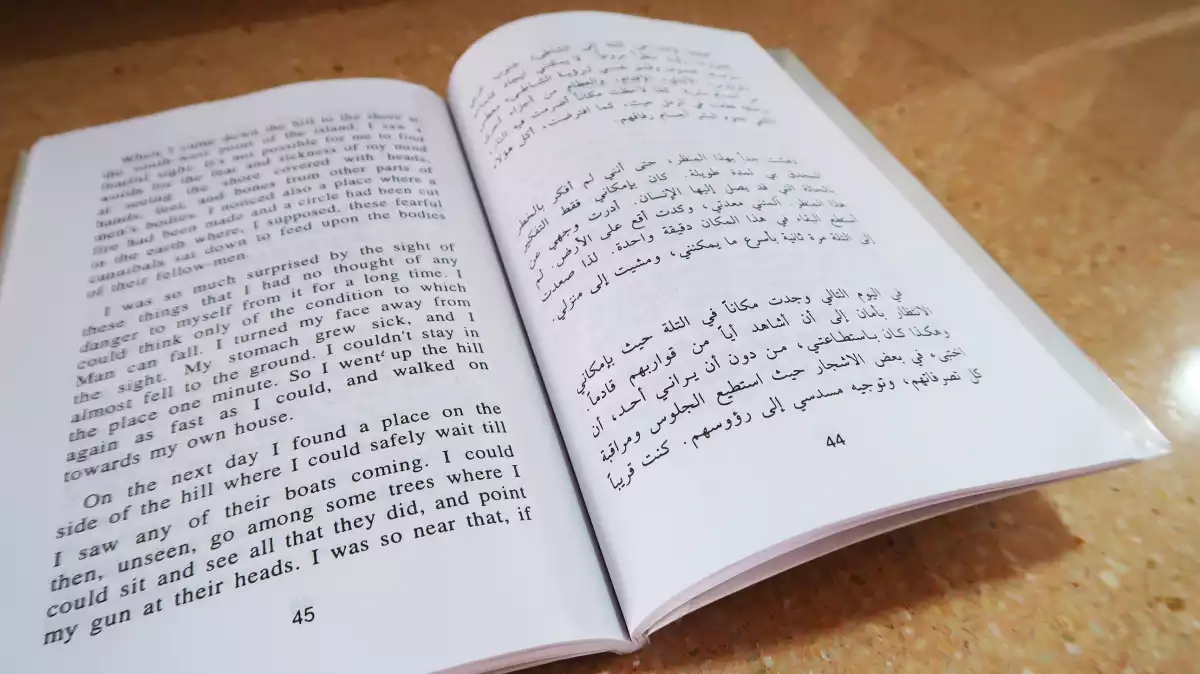 When I came down the hill to the shore at
the south-west point of the island, I saw a
sight. It's not possible for me to find
words for the fear and sickness of my mind
at seeing the shore covered with heads,
hands, feet, and bones from other parts of
men's bodies. I noticed also a place where a
fire had been made and a circle had been cut
in the earth where, I supposed, these fearful
cannibals sat down to feed upon the bodies
of their fellow-men.
I was so much surprised by the sight of
these things that I had no thought of any
danger to myself from it for a long time. I
could think only of the condition to which
Man can fall. I turned my face away from
the sight. My stomach grew sick, and I
almost fell to the ground. I couldn't stay in
the place one minute. So I went up the hill
again as fast as I could, and walked on
towards my own house.
On the next day I found a place on the
side of the hill where I could safely wait till
I saw any of their boats coming. I could
then, unseen, go among some trees where I
could sit and see all that they did, and point
my gun at their heads. I was so near that, if
45
من التلة إلى الشاطئ، جنوب غربي
لا يمكنني إيجاد كلمات
لرؤية الشاطئ، يغطى
والعظام من أجزاء أخرى
كما لاحظت مكاناً أضرمت فيه النار
في الأرض حيث، كما افترضت، أكل هؤلاء
لحوم البشر أجسام رفاقهم.
دهشت جداً بهذا المنظر، حتى أنني لم أفكر بالخطر
المحدق بي لمدة طويلة. كان بإمكاني فقط التفكير
بالحالة التي قد يصل إليها الإنسان. أدرت وجهي عن
هذا المنظر. آلمتني معدتي، وكدت أقع على الأرض. لم
أستطع البقاء في هذا المكان دقيقة واحدة. لذا صعدت
إلى التلة مرة ثانية بأسرع ما يمكنني، ومشيت إلى منزلي.
في اليوم التالي وجدت مكاناً في التلة حيث بإمكاني
الانتظار بأمان إلى أن أشاهد أياً من قواربهم قادماً.
وهكذا كان باستطاعتي، من دون أن يراني أحد، أن
اختبىء في بعض الاشجار حيث استطيع الجلوس ومراقبة
كل تصرفاتهم، وتوجيه مسدسي إلى رؤوسهم. كنت قريباً
44